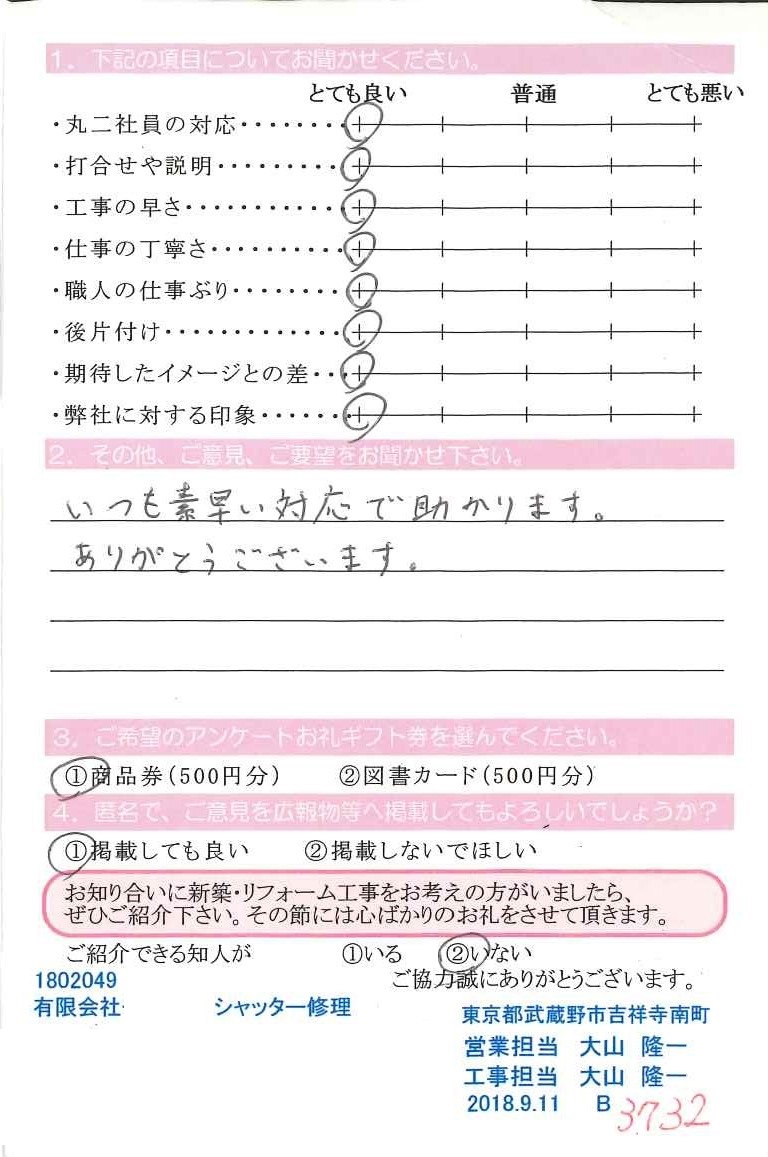 1. 下記の項目についてお聞かせください。
とても良い 普通 とても悪い
・丸二社員の対応・・・・・・・・
・打合せや説明・・・・・・・・・
・工事の早さ・・・・・・・・・・・
・仕事の丁寧さ・・・・・・・・・・
・職人の仕事ぶり・・・・・・・・
・後片付け・・・・・・・・・・・・・
・期待したイメージとの差・・・
・弊社に対する印象・・・・・・・
2. その他、ご意見、ご要望をお聞かせ下さい。
いつも素早い対応で助かります。
ありがとうございます。
3. ご希望のアンケートお礼ギフト券を選んでください。
①商品券(500円分) ②図書カード(500円分)
4. 匿名で、ご意見を広報物等へ掲載してもよろしいでしょうか?
①掲載しても良い ②掲載しないでほしい
お知り合いに新築・リフォーム工事をお考えの方がいましたら、
ぜひご紹介下さい。その節には心ばかりのお礼をさせて頂きます。
ご紹介できる知人が ①いる ②いない
ご協力誠にありがとうございます。
1802049
有限会社 シャッター修理
東京都武蔵野市吉祥寺南町
営業担当 大山 隆一
工事担当 大山 隆一
2018.9.11 B 3732